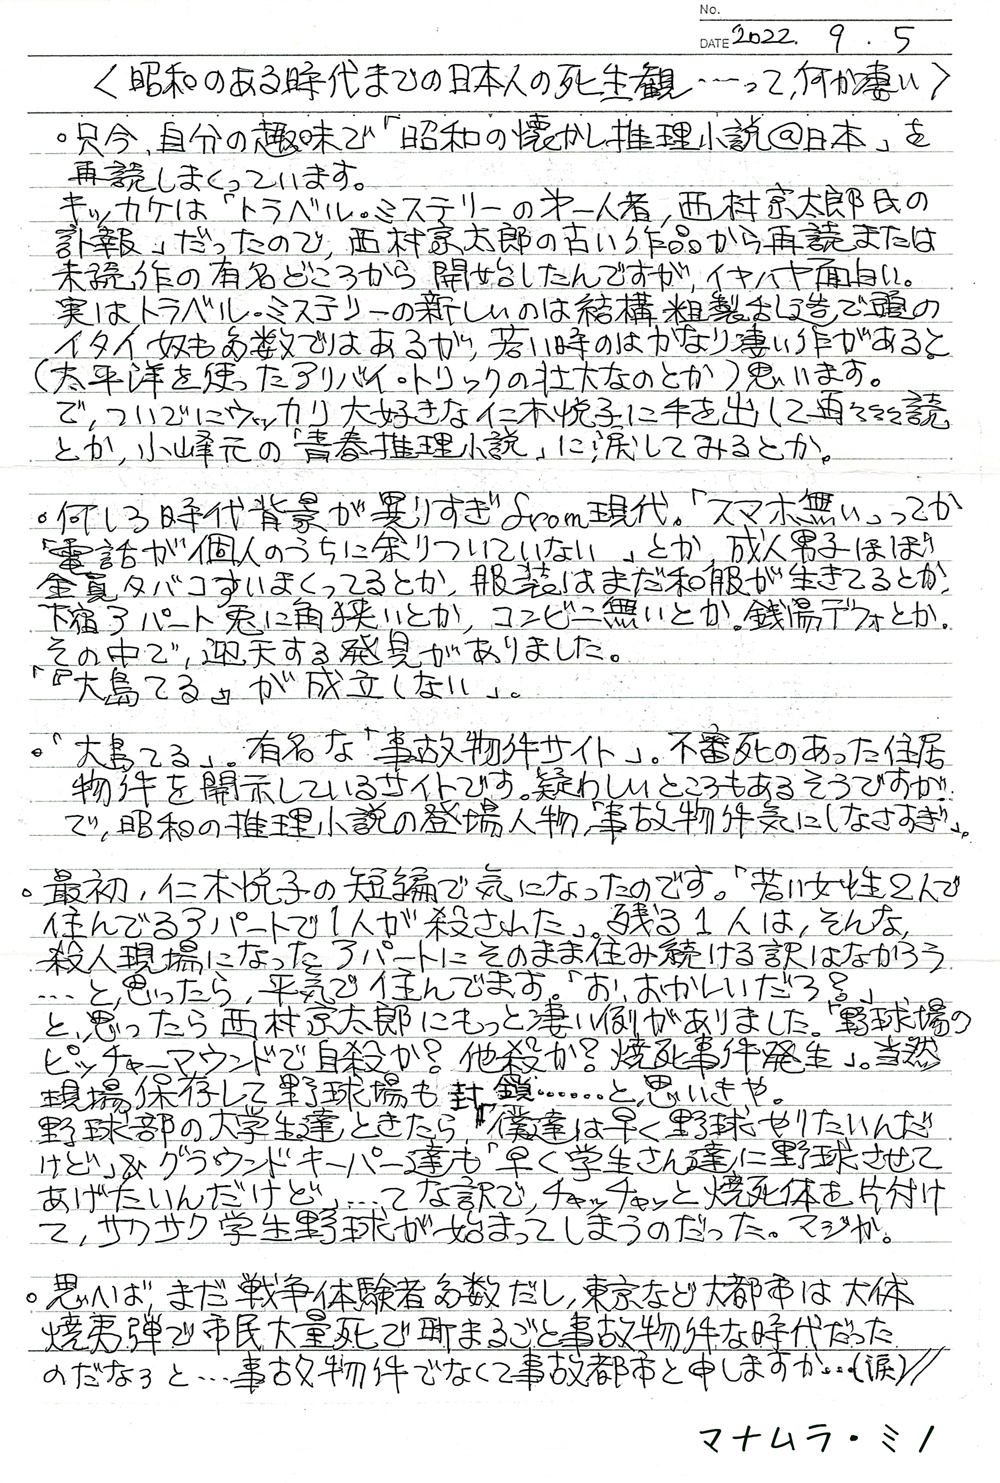 No.
DATE 2022. 9 . 5
〈昭和のある時代までの日本人の死生観……って,何か凄い〉
○只今,自分の趣味で「昭和の懐かし推理小説@日本」を
再読しまくっています。
キッカケは「トラベル・ミステリーの第一人者,西村京太郎氏の
訃報」だったので,西村京太郎の古い作品から再読または
未読作の有名どころから開始したんですが,イヤハヤ面白い。
実はトラベル・ミステリーの新しいのは結構粗製乱造で頭の
イタイ奴も多数ではあるが,若い時のはかなり凄い作があると
(太平洋を使ったアリバイ・トリックの壮大なのとか)思います。
で,ついでにウッカリ大好きな仁木悦子に手を出して再々々々読
とか,小峰元の「青春推理小説」に涙してみるとか。
○何しろ時代背景が異りすぎfrom現代。「スマホ無い」ってか
「電話が個人のうちに余りついていない」とか,成人男子ほぼ
全員タバコすいまくってるとか,服装はまだ和服が生きてるとか,
下宿アパート兎に角狭いとか,コンビニ無いとか。銭湯デフォとか。
その中で,迎天する発見がありました。
「『大島てる』が成立しない」。
○「大島てる」。有名な「事故物件サイト」。不審死のあった住居
物件を開示しているサイトです。疑わしいところもあるそうですが…
で,昭和の推理小説の登場人物,「事故物件気にしなさすぎ」。
○最初,仁木悦子の短編で気になったのです。「若い女性2人で
住んでるアパートで1人が殺された」。残る1人は,そんな,
殺人現場になったアパートにそのまま住み続ける訳はなかろう
…と,思ったら,平気で住んでます。「お,おかしいだろ?」,
と,思ったら西村京太郎にもっと凄い例がありました。「野球場の
ピッチャーマウンドで自殺か?他殺か?焼死事件発生」。当然
現場保存して野球場も封鎖……と,思いきや。
野球部の大学生達ときたら,「僕達は早く野球やりたいんだ
けど」&グラウンドキーパー達も「早く学生さん達に野球させて
あげたいんだけど」…てな訳で,チャッチャッと焼死体を片付け
て,サクサク学生野球が始まってしまうのだった。マジか。
○思へば,まだ戦争体験者多数だし,東京など大都市は大体
焼夷弾で市民大量死で町まるごと事故物件な時代だった
のだなぁと…事故物件でなくて事故都市と申しますか…(涙)//
マナムラ・ミノ